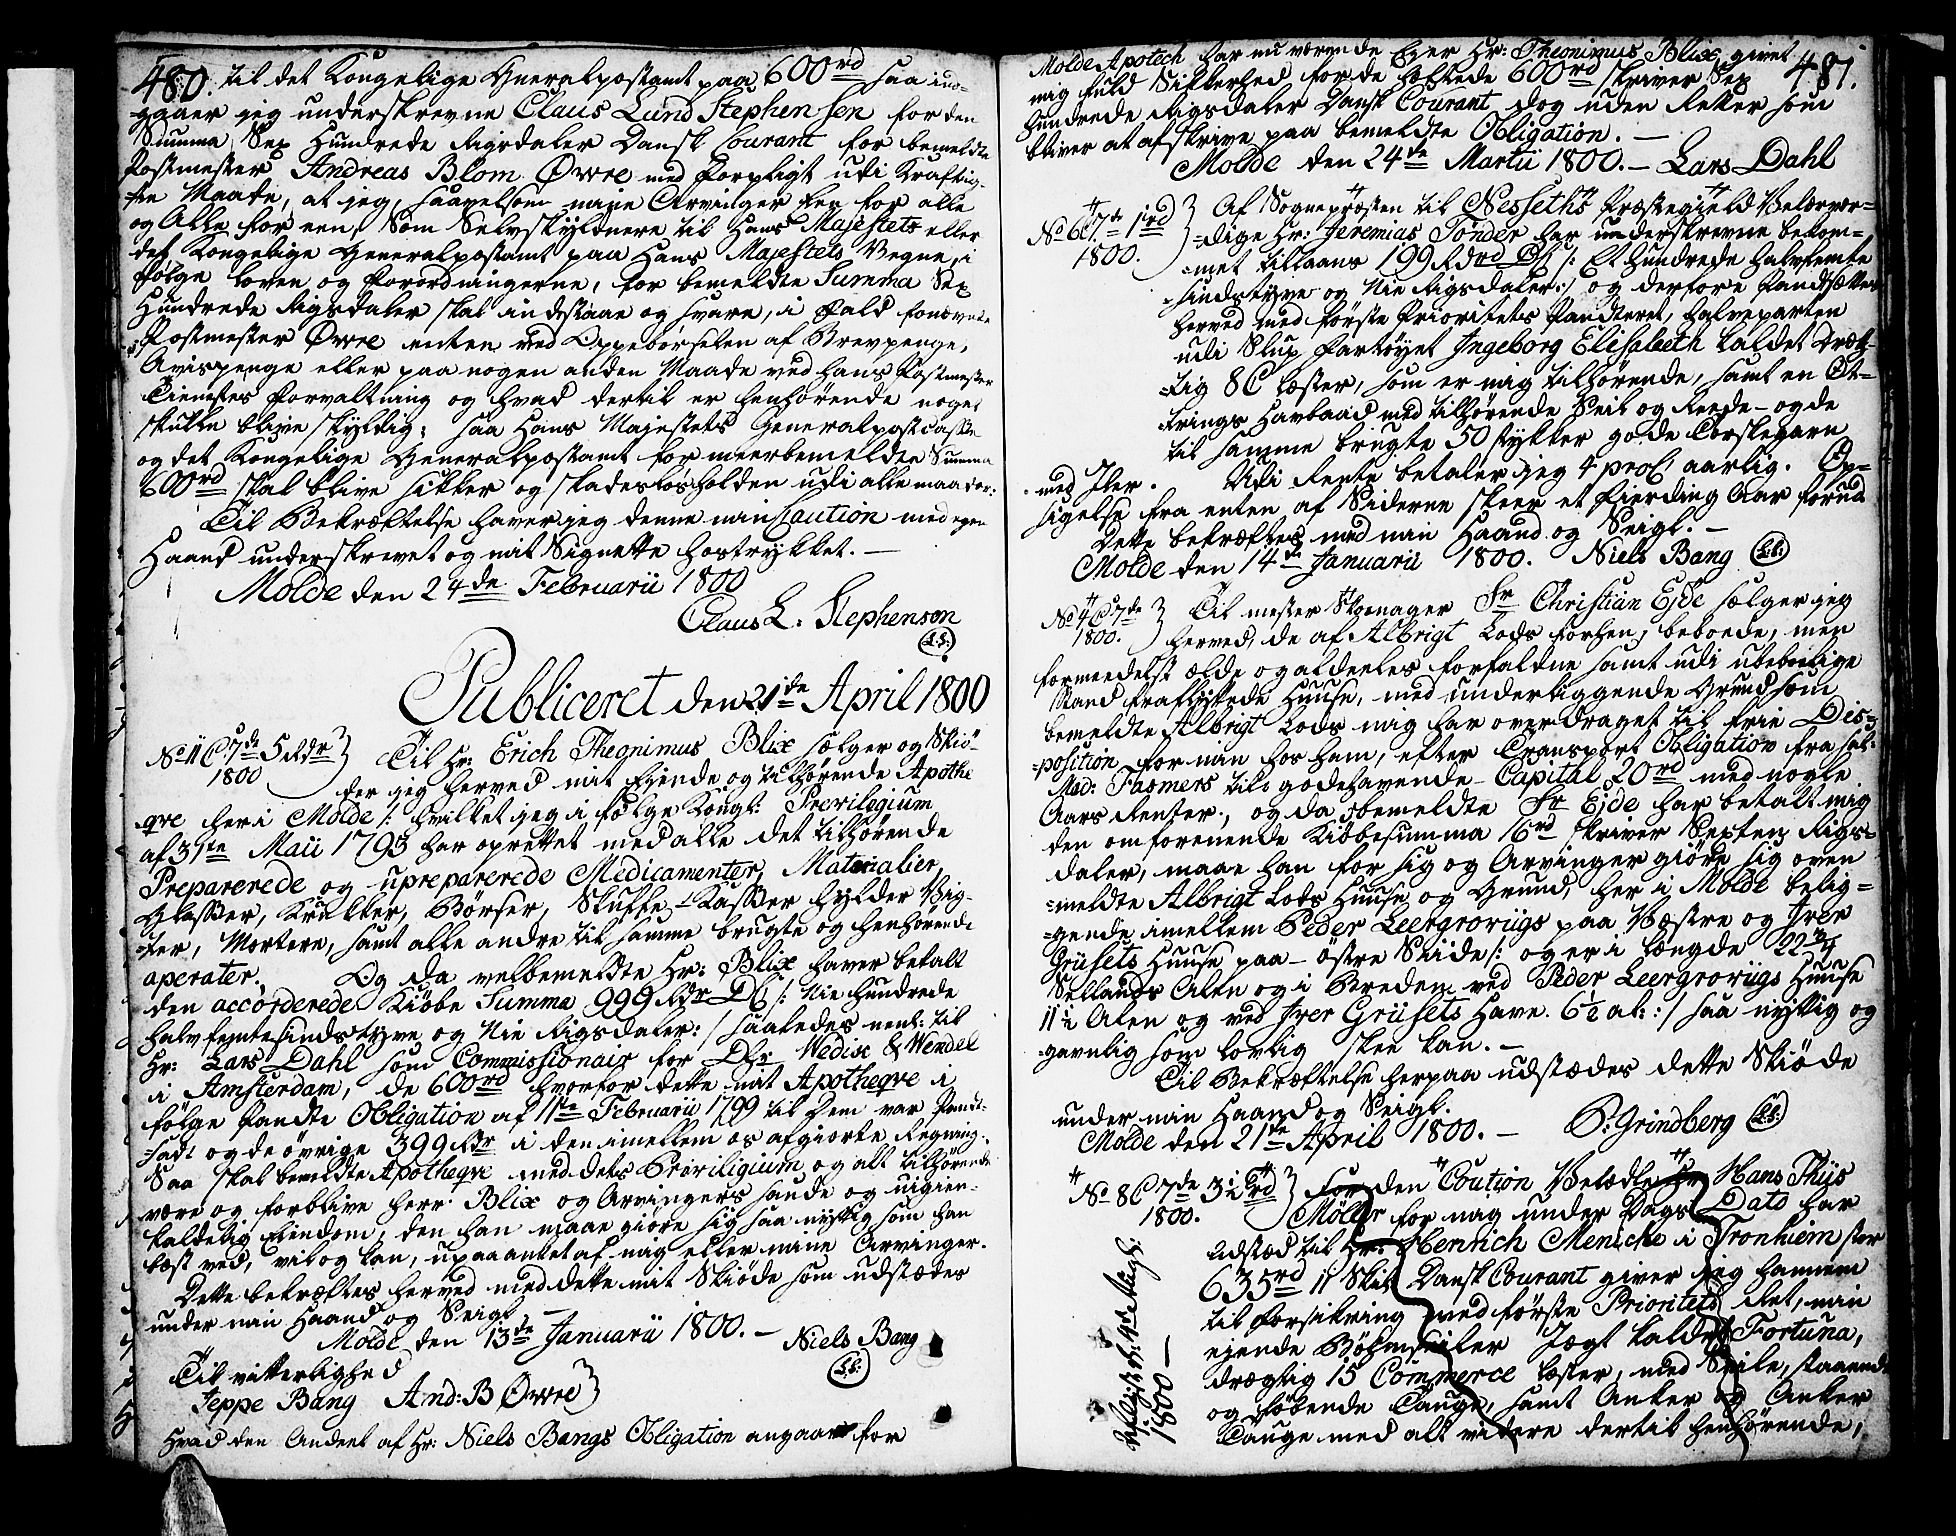 480. til det Kongelige Generalpostamt paa 600rd saa ind-
gaaer jeg underskrevne Claus Lund Stephensen for den
Summa Sex Hundrede Rigsdaler Dansk Courant for bemeldte
Postmester Andreas Blom Øvre med Forpligt udi Kraftig-
ste Maade, at jeg, saavelsom mine Arvinger Een for alle
og Alle for een, som Selvskyldnere til Hans Majestets eller
det Kongelige Generalpostamt paa Hans Majestets Vegne, i
Følge Loven og Forordningerne, for bemeldte Summa Sex
Hundrede Rigsdaler skal indestaae og svare, i Fald
Postmester Øvre enten ved Oppebørselen af Brevpenge,
Avispenge eller paa nogen anden Maade ved Hans Postmester
Tienestes Forvaltning og hvad dertil er henhørende noget
skulle blive skyldig; saa Hans Majestets Generalpostcasse
og det Kongelige Generalpostamt for meerbemeldte Summa
600rd skal blive sikker og skadesløsholden udi alle maader:
Til Bekræftelse haver jeg denne min Caution med egen
Haand underskrevet og mit Signette hostrykket. —
Molde den 24de Februarii 1800
Claus L. Stephenson
L.S.
Publiceret den 21de April 1800
No 11 C 7de 5 Rdr
1800
Til Hr: Erich Theonimus Blix sælger og Skiø-
der jeg herved mit Ejende og tilhørende Apothe
qve her i Molde /: hvilket jeg i følge Kongl: Previlegium
af 31te Maii 1793 har oprettet med alle det tilhørende
Preparerede og upreparerede Medicamenter, Materialier,
Glasser, Krukker, Børser, Skuffe- Kasser Hylder Vig-
ter, Mortere, samt alle andre til samme brugte og henhørende
aperater. Og da velbemeldte Hr: Blix haver betalt
den accorderede Kiøbe Summa 999 Rdr DC /: Nie Hundrede
halvfemtesindstyve og Nie Rigsdaler: / saaledes neml: til
Hr: Lars Dahl som Commissionair for Dhr Wedix & Wendel
i Amsterdam, de 600rd hvorfor dette mit Apotheqve i
følge Pandte Obligation af 11te Februarii 1799 til Dem var Pant-
sadt og de øvrige 399 Rdr i den imellem os afgiorte Regning.
Saa skal bemeldte Apotheqve med dets Priviligium og alt tilhørende
være og forblive Herr Blix og Arvingers sande og uigien-
kaldelig Eiendom, den han maae giøre sig saa nyttig som han
best ved, vil og kan, upaaanket af mig eller mine Arvinger.
Dette bekræftes herved med dette mit Skiøde som udstædes
under min Haand og Seigl —
Molde den 13de Januarii 1800. — Niels Bang
L.S.
Til vitterlighed
Jeppe Bang And: B Øvre
Hvad den Andeel af Hr: Niels Bangs Obligation angaaer for
481.
Molde Apotech har nu værende Ejer Hr: Theonimus Blix givet
mig fuld Sikkerhed for de hæftede 600rd skriver Sex
Hundrede Rigsdaler Dansk Courant dog uden Renter som
bliver at afskrive paa bemeldte Obligation. —
Molde den 24de Martii 1800. — Lars Dahl
No 6 C 7de 1rd
1800.
Af Sognepræsten til Nesseths Præstegield Velærvær-
dige Hr: Jeremias Tønder har underskrevne bekom-
met tillaans 199 Rdrd DC /: Et Hundrede Halvfemte
sindstyve og Nie Rigsdaler: / og derfore Pandsætter
herved med første Prioritets Pandteret, Halveparten
udi Slup Fartøyet Ingeborg Elisabeth kaldet dræg-
tig 8 C Læster, som er mig tilhørende, samt en Ot-
trings Havbaad med tilhørende Seil og Reede — og de
til samme brugte 50 stykker gode Torskegarn
med Iler. Udi Rente betaler jeg 4 proC aarlig. Op-
sigelse fra enten af Siderne skeer et Fierding Aar forud
Dette bekræftes med min Haand og Seigl. —
Molde den 14de Januarii 1800. Niels Bang L.S.
No 4 C 7de
1800.
Til mester Skomager Sr Christian Ejde sælger jeg
herved, de af Albrigt Lods forhen, beboede, men
formedelst ælde og aldeeles forfaldne samt udi ubeboelige
Stand fraflyttede Huuse, med underliggende Grund som
bemeldte Albrigt Lods mig har overdraget til frie Dis-
position for min hos ham, efter Transport Obligation fra
Mad: Fasmers til godehavende Capital 20rd med nogle
Aars Renter, og da bemeldte Sr Ejde har betalt mig
den omforenende Kiøbesumma 16rd skriver Sexten Rigs-
daler, maae han for sig og Arvinger giøre sig oven
meldte Albrigt Lods Huuse og Grund, her i Molde belig-
gende imellem Peder Leergroviigs paa Væstre og Iver
Grüsets Huuse paa — østre Siide /: og er i længde 22 3/4
Sellands Alen og i Breden ved Peder Leergroviigs Huuse
11 1/2 Alen og ved Iver Grüsets Have. 6 1/2 al: : / saa nyttig og
gavnlig som lovlig skee kan. —
Til Bekræftelse herpaa udstædes dette Skiøde
under min Haand og Seigl.
Molde den 21de April 1800. — P: Grindberg L.S.
No 8 C 7de 3 1/2 rd
1800.
For den Caution Velædle Hr Hans Thiis
Møller for mig under Dags Dato har
udstæd til Hr: Henrich Menicke i Tronhiem stor
635rd 11 Skl Dansk Courant giver jeg hannem
til Forsikring med første Prioritets Ret, min
ejende Jægt kaldet Fortuna,
drægtig 15 Commerce læster, med Seile, staaende
og løbende Touge, samt Anker og Anker
Touge med alt videre dertil henhørende,
1800 —